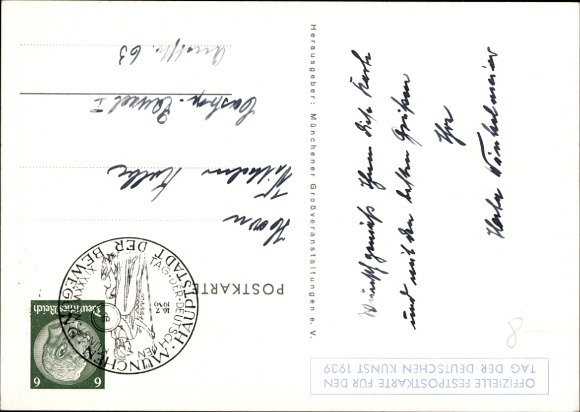 OFFIZIELLE FESTPOSTKARTE FÜR DEN
TAG DER DEUTSCHEN KUNST 1939
Wunschgemäß Ihnen diese Karte
und mit den besten Grüßen
Ihr
POSTKARTE
Deutsches Reich
6 6
MÜNCHEN
HAUPTSTADT DER BEWEGUNG
TAG DER DEUTSCHEN
16.7.
1939
Herrn
Wilhelm
Castrop-Rauxel I
63
Herausgeber: Münchener Großveranstaltungen e. V.
8-